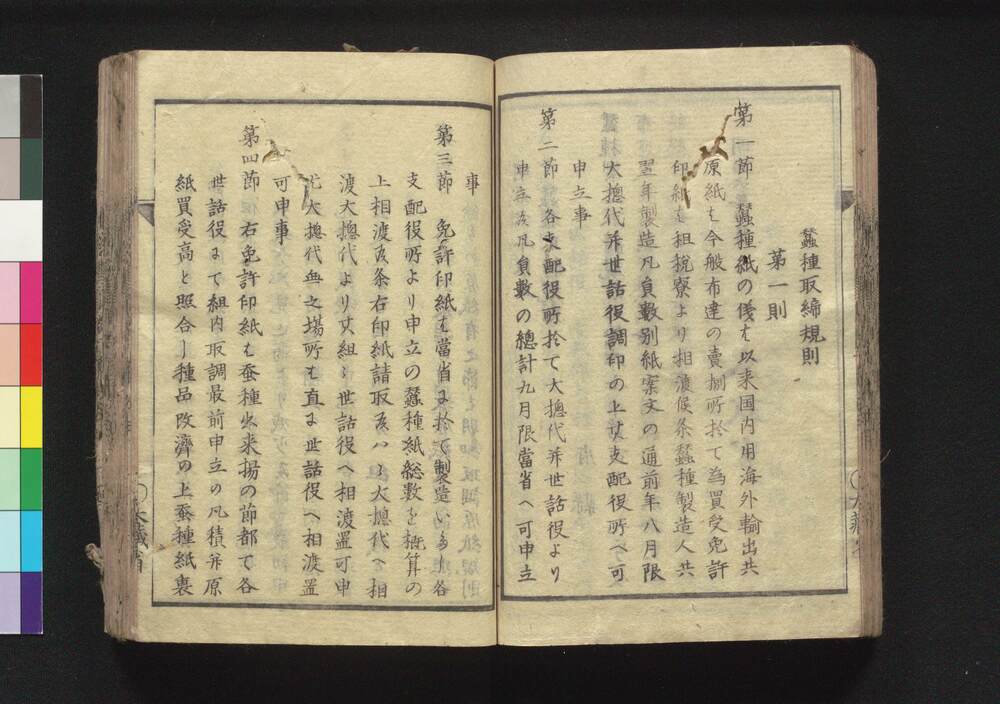 蠶種取締規則
第一則
第一節 蠶種紙の儀は以来国内用海外輸出共
原紙は今般布達の賣捌所於て為買受免許
印紙は租税寮より相渡候条蠶種製造人共
翌年製造凡員數別紙案文の通前年八月限
大摠代并世話役調印の上其支配役所へ可
申立事
第二節 各支配役所於て大摠代并世話役より
申立候凡員數の總計九月限當省へ可申立
事
第三節 免許印紙は當省に於て製造いたし各
支配役所より申立の蠶種紙総數を概算の
上相渡候条右印紙請取候ハヽ大摠代へ相
渡大摠代より其組々世話役へ相渡置可申
尤大摠代無之場所は直に世話役へ相渡置
可申事
第四節 右免許印紙は蚕種出来揚の節都て各
世話役にて組内取調最前申立の凡積并原
紙買受高と照合し種品改濟の上蚕種紙裏
大藏省